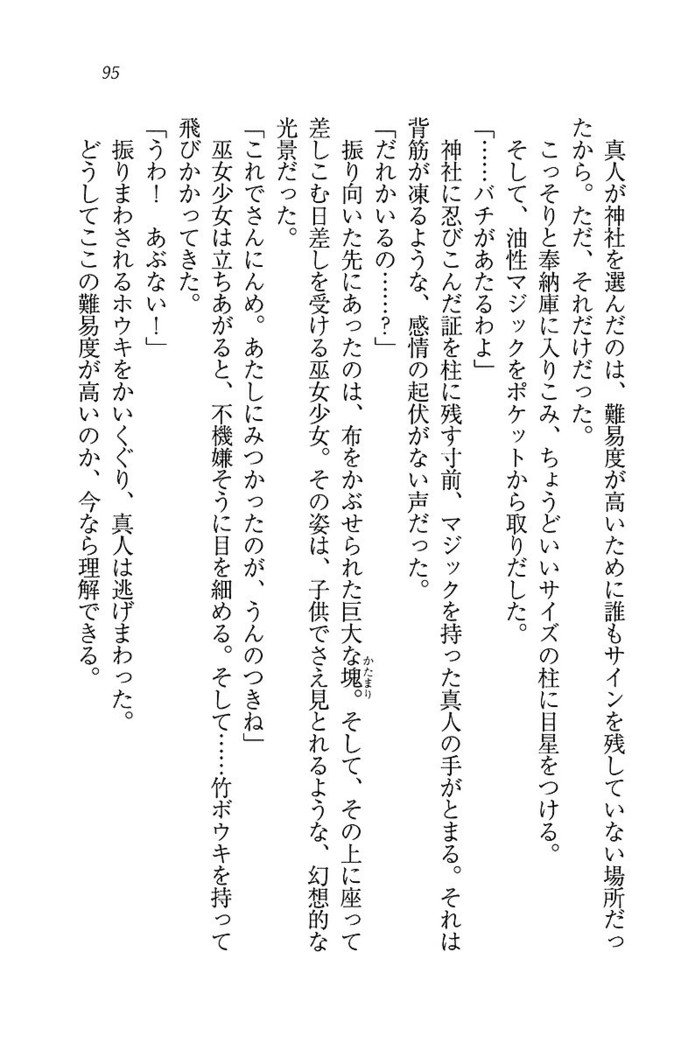 95
真人が神社を選んだのは、難易度が高いために誰もサインを残していない場所だっ
たから。ただ、それだけだった。
こっそりと奉納庫に入りこみ、ちょうどいいサイズの柱に目星をつける。
そして、油性マジックをポケットから取りだした。
「……バチがあたるわよ」
神社に忍びこんだ証を柱に残す寸前、マジックを持った真人の手がとまる。それは
背筋が凍るような、感情の起伏がない声だった。
「だれかいるの……？」
振り向いた先にあったのは、布をかぶせられた巨大な塊。そして、その上に座って
かたまり
差しこむ日差しを受ける巫女少女。その姿は、子供でさえ見とれるような、幻想的な
光景だった。
「これでさんにんめ。あたしにみつかったのが、うんのつきね」
巫女少女は立ちあがると、不機嫌そうに目を細める。そして……竹ボウキを持って
飛びかかってきた。
「うわ！　あぶない！」
振りまわされるホウキをかいくぐり、真人は逃げまわった。
どうしてここの難易度が高いのか、今なら理解できる。